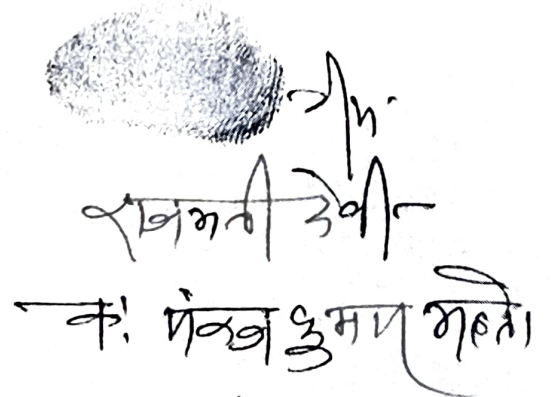 नि०
राजमती देवी
क० पंकज कुमार महतो